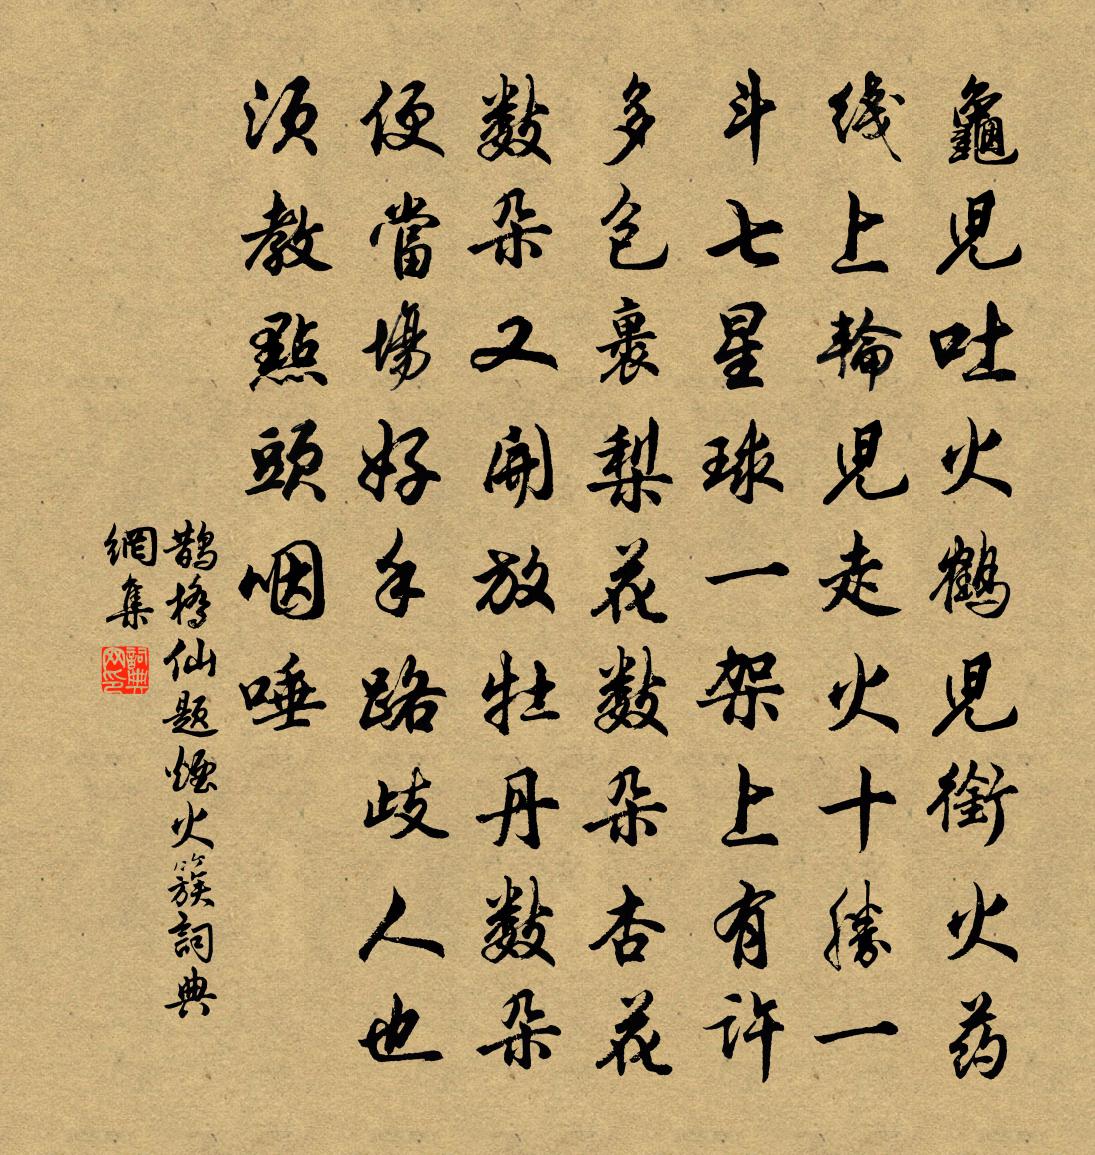 龜兒吐火鶴兒銜火药
线上輪兒走火十勝一
斗七星球一架上有許
多包裹梨花數朵杏花
數朵又開放牡丹數朵
便當場好手路歧人也
須教點頭咽唾
鵲橋仙题煙火簇詞典
網集
詞典
网